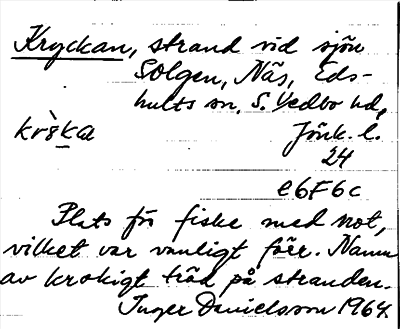 Kryckan, strand vid sjön
Solgen, Näs, Eds-
hults sn, S. Vedbo hd,
Jönk. l.
24
e6F6c
Plats för fiske med not,
vilket var vanligt förr. Namn
av krokigt träd på stranden.
Inger Danielsson 1964.